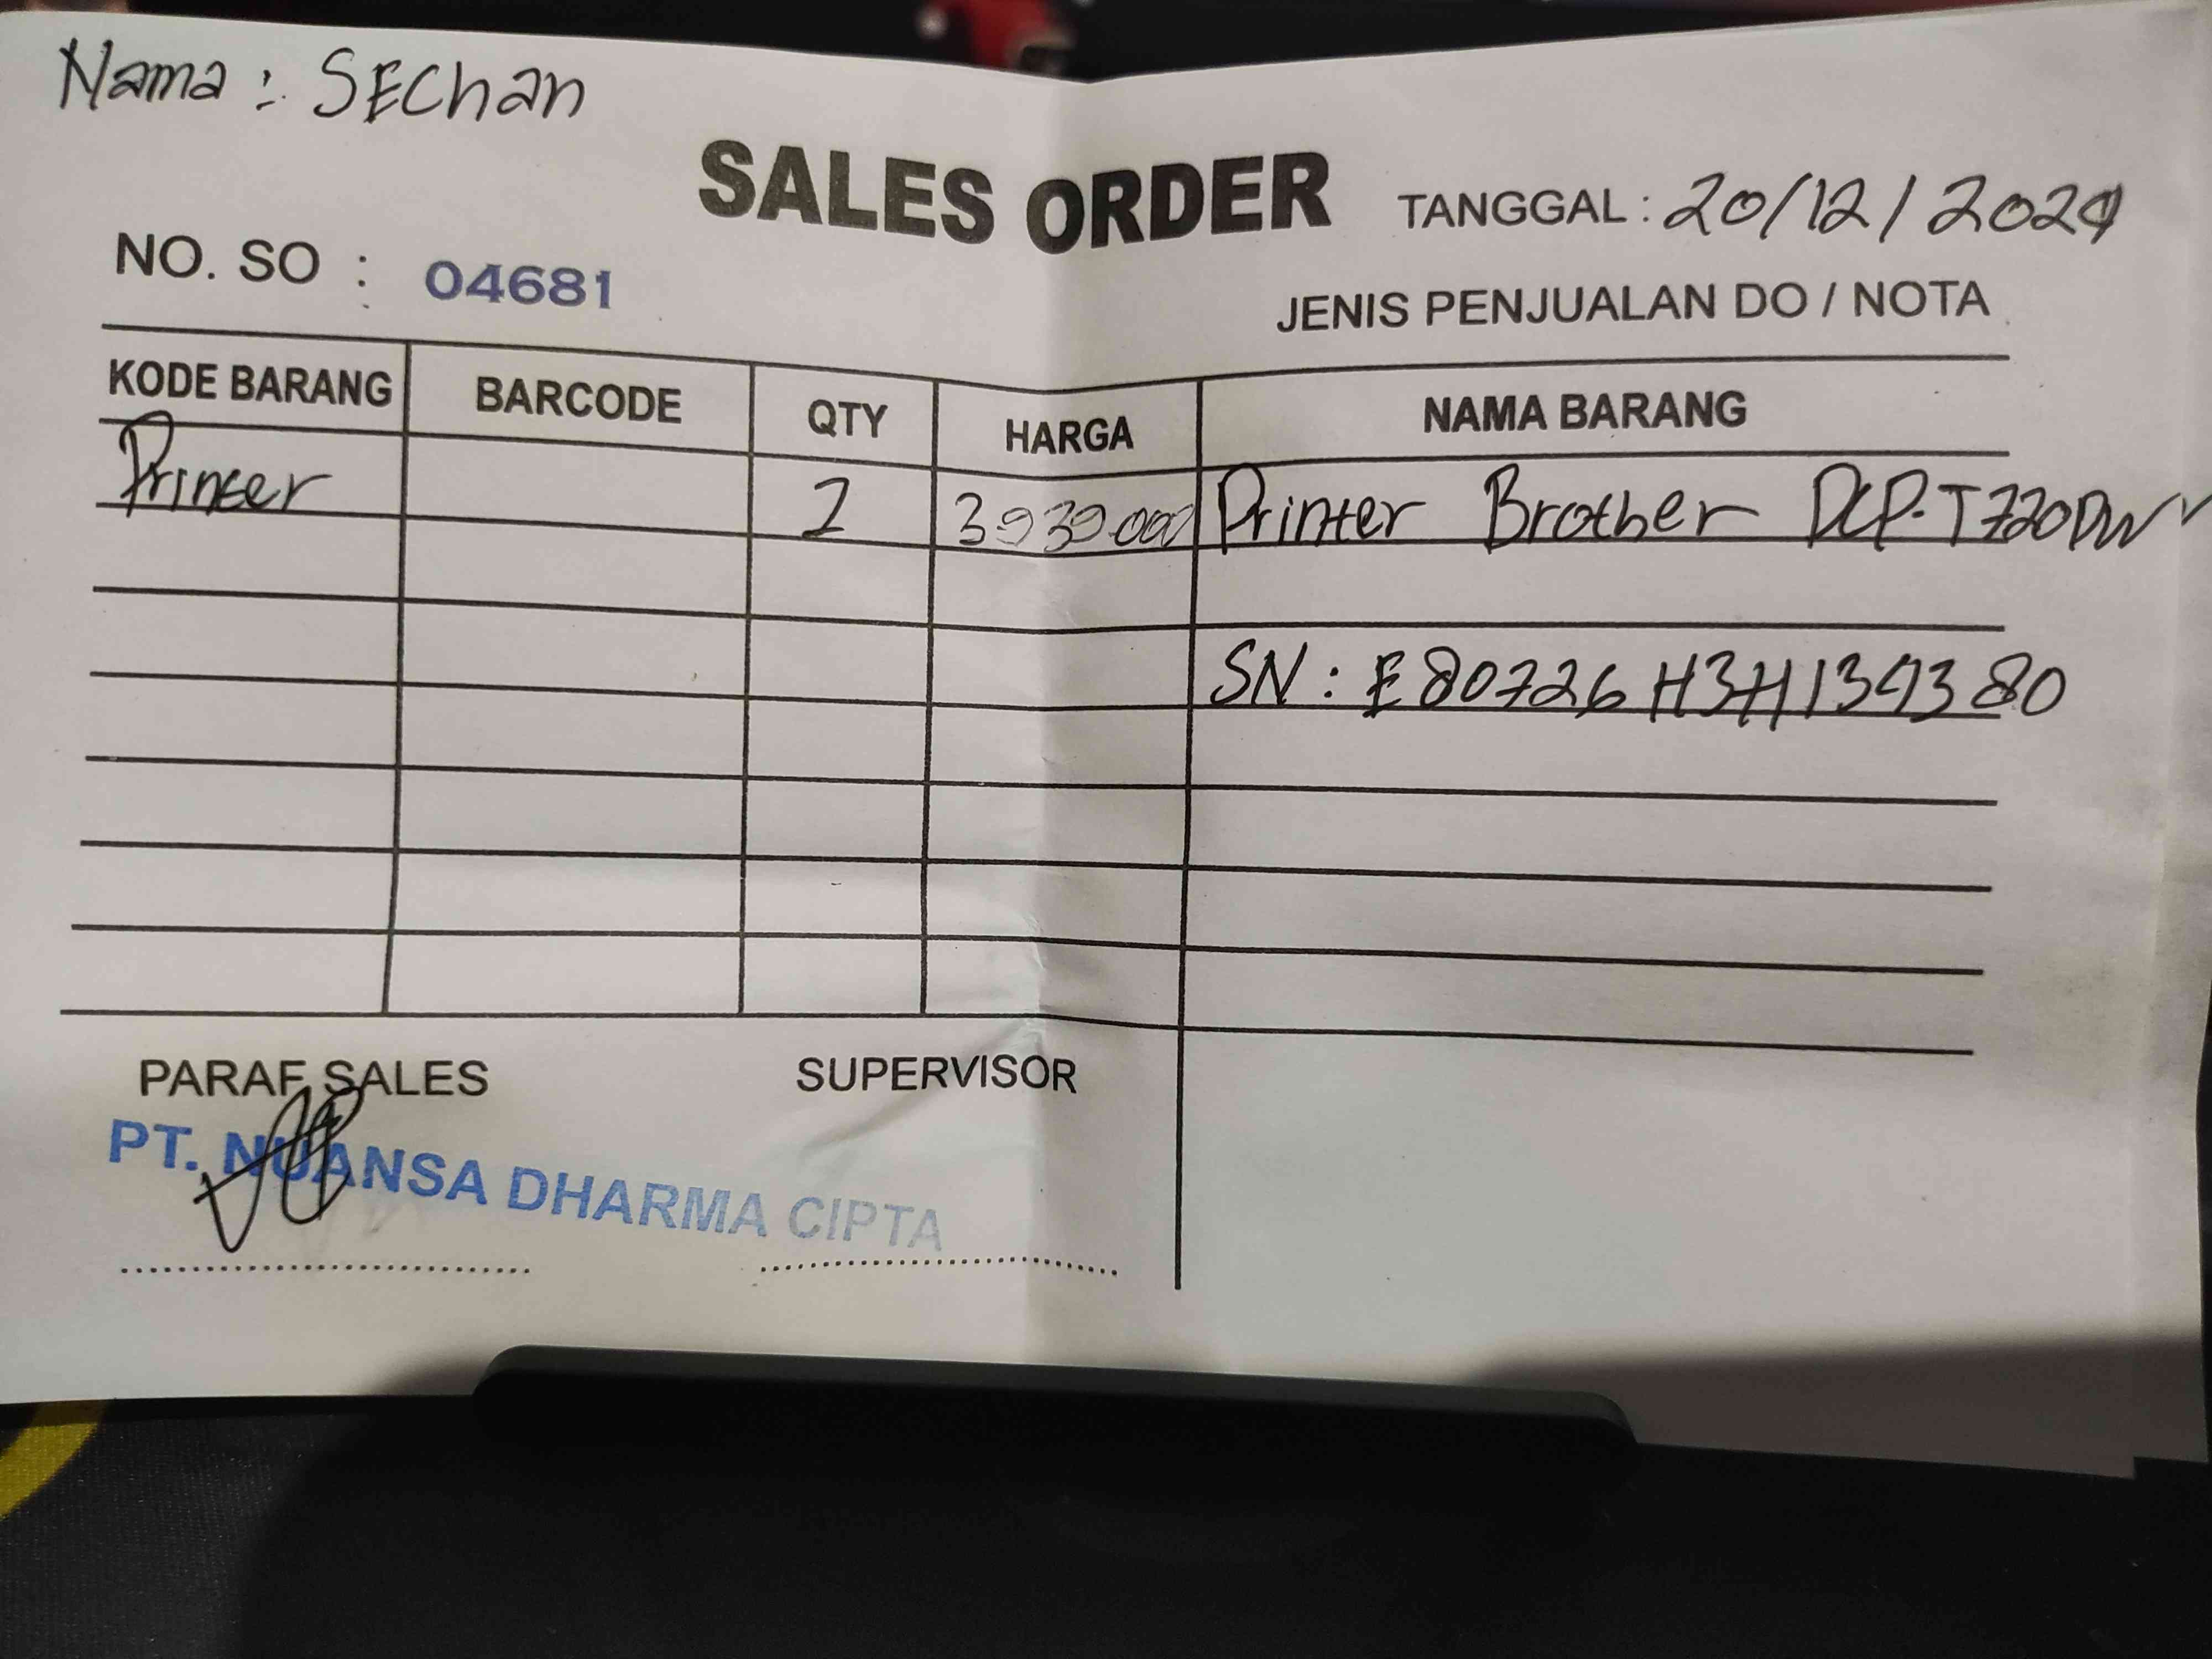 Nama : SEChan
SALES ORDER
TANGGAL : 20/12/2024
NO. SO : 04681
JENIS PENJUALAN DO / NOTA
KODE BARANG BARCODE QTY HARGA NAMA BARANG
Printer 1 3939000 Printer Brother DCP-T720DW
SN : E80726H3H134380
PARAF SALES SUPERVISOR
PT. NUANSA DHARMA CIPTA